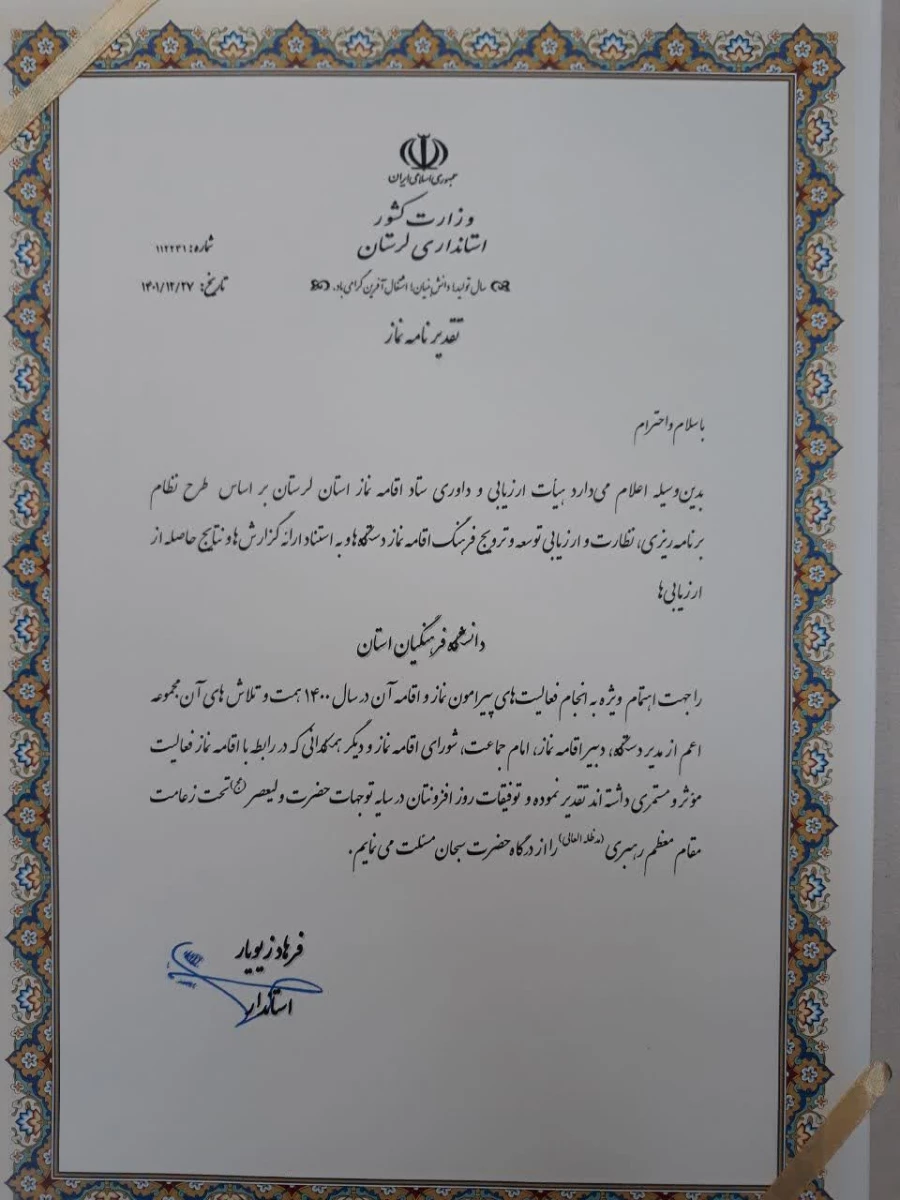 جمهوری اسلامی ایران
وزارت کشور
استانداری لرستان
شماره: ۱۱۲۲۳۱
تاریخ: ۱۴۰۱/۱۲/۲۷
سال تولید؛ دانش‌بنیان؛ اشتغال‌آفرین گرامی باد.
تقدیرنامه نماز
باسلام و احترام
بدین‌وسیله اعلام می‌دارد هیأت ارزیابی و داوری ستاد اقامه نماز استان لرستان بر اساس طرح نظام
برنامه‌ریزی، نظارت و ارزیابی توسعه و ترویج فرهنگ اقامه نماز دستگاه‌ها و به استناد ارائه گزارش‌ها و نتایج حاصله از
ارزیابی‌ها
دانشگاه فرهنگیان استان
را جهت اهتمام ویژه به انجام فعالیت‌های پیرامون نماز و اقامه آن در سال ۱۴۰۰ همت و تلاش های آن مجموعه
اعم از مدیر دستگاه، دبیر اقامه نماز، امام جماعت، شورای اقامه نماز و دیگر همکارانی که در رابطه با اقامه نماز فعالیت
مؤثر و مستمری داشته اند تقدیر نموده و توفیقات روز افزونتان در سایه توجهات حضرت ولیعصر (عج) تحت زعامت
مقام معظم رهبری (مدظله العالی) را از درگاه حضرت سبحان مسئلت می نمایم.
فرهاد زیویار
استاندار